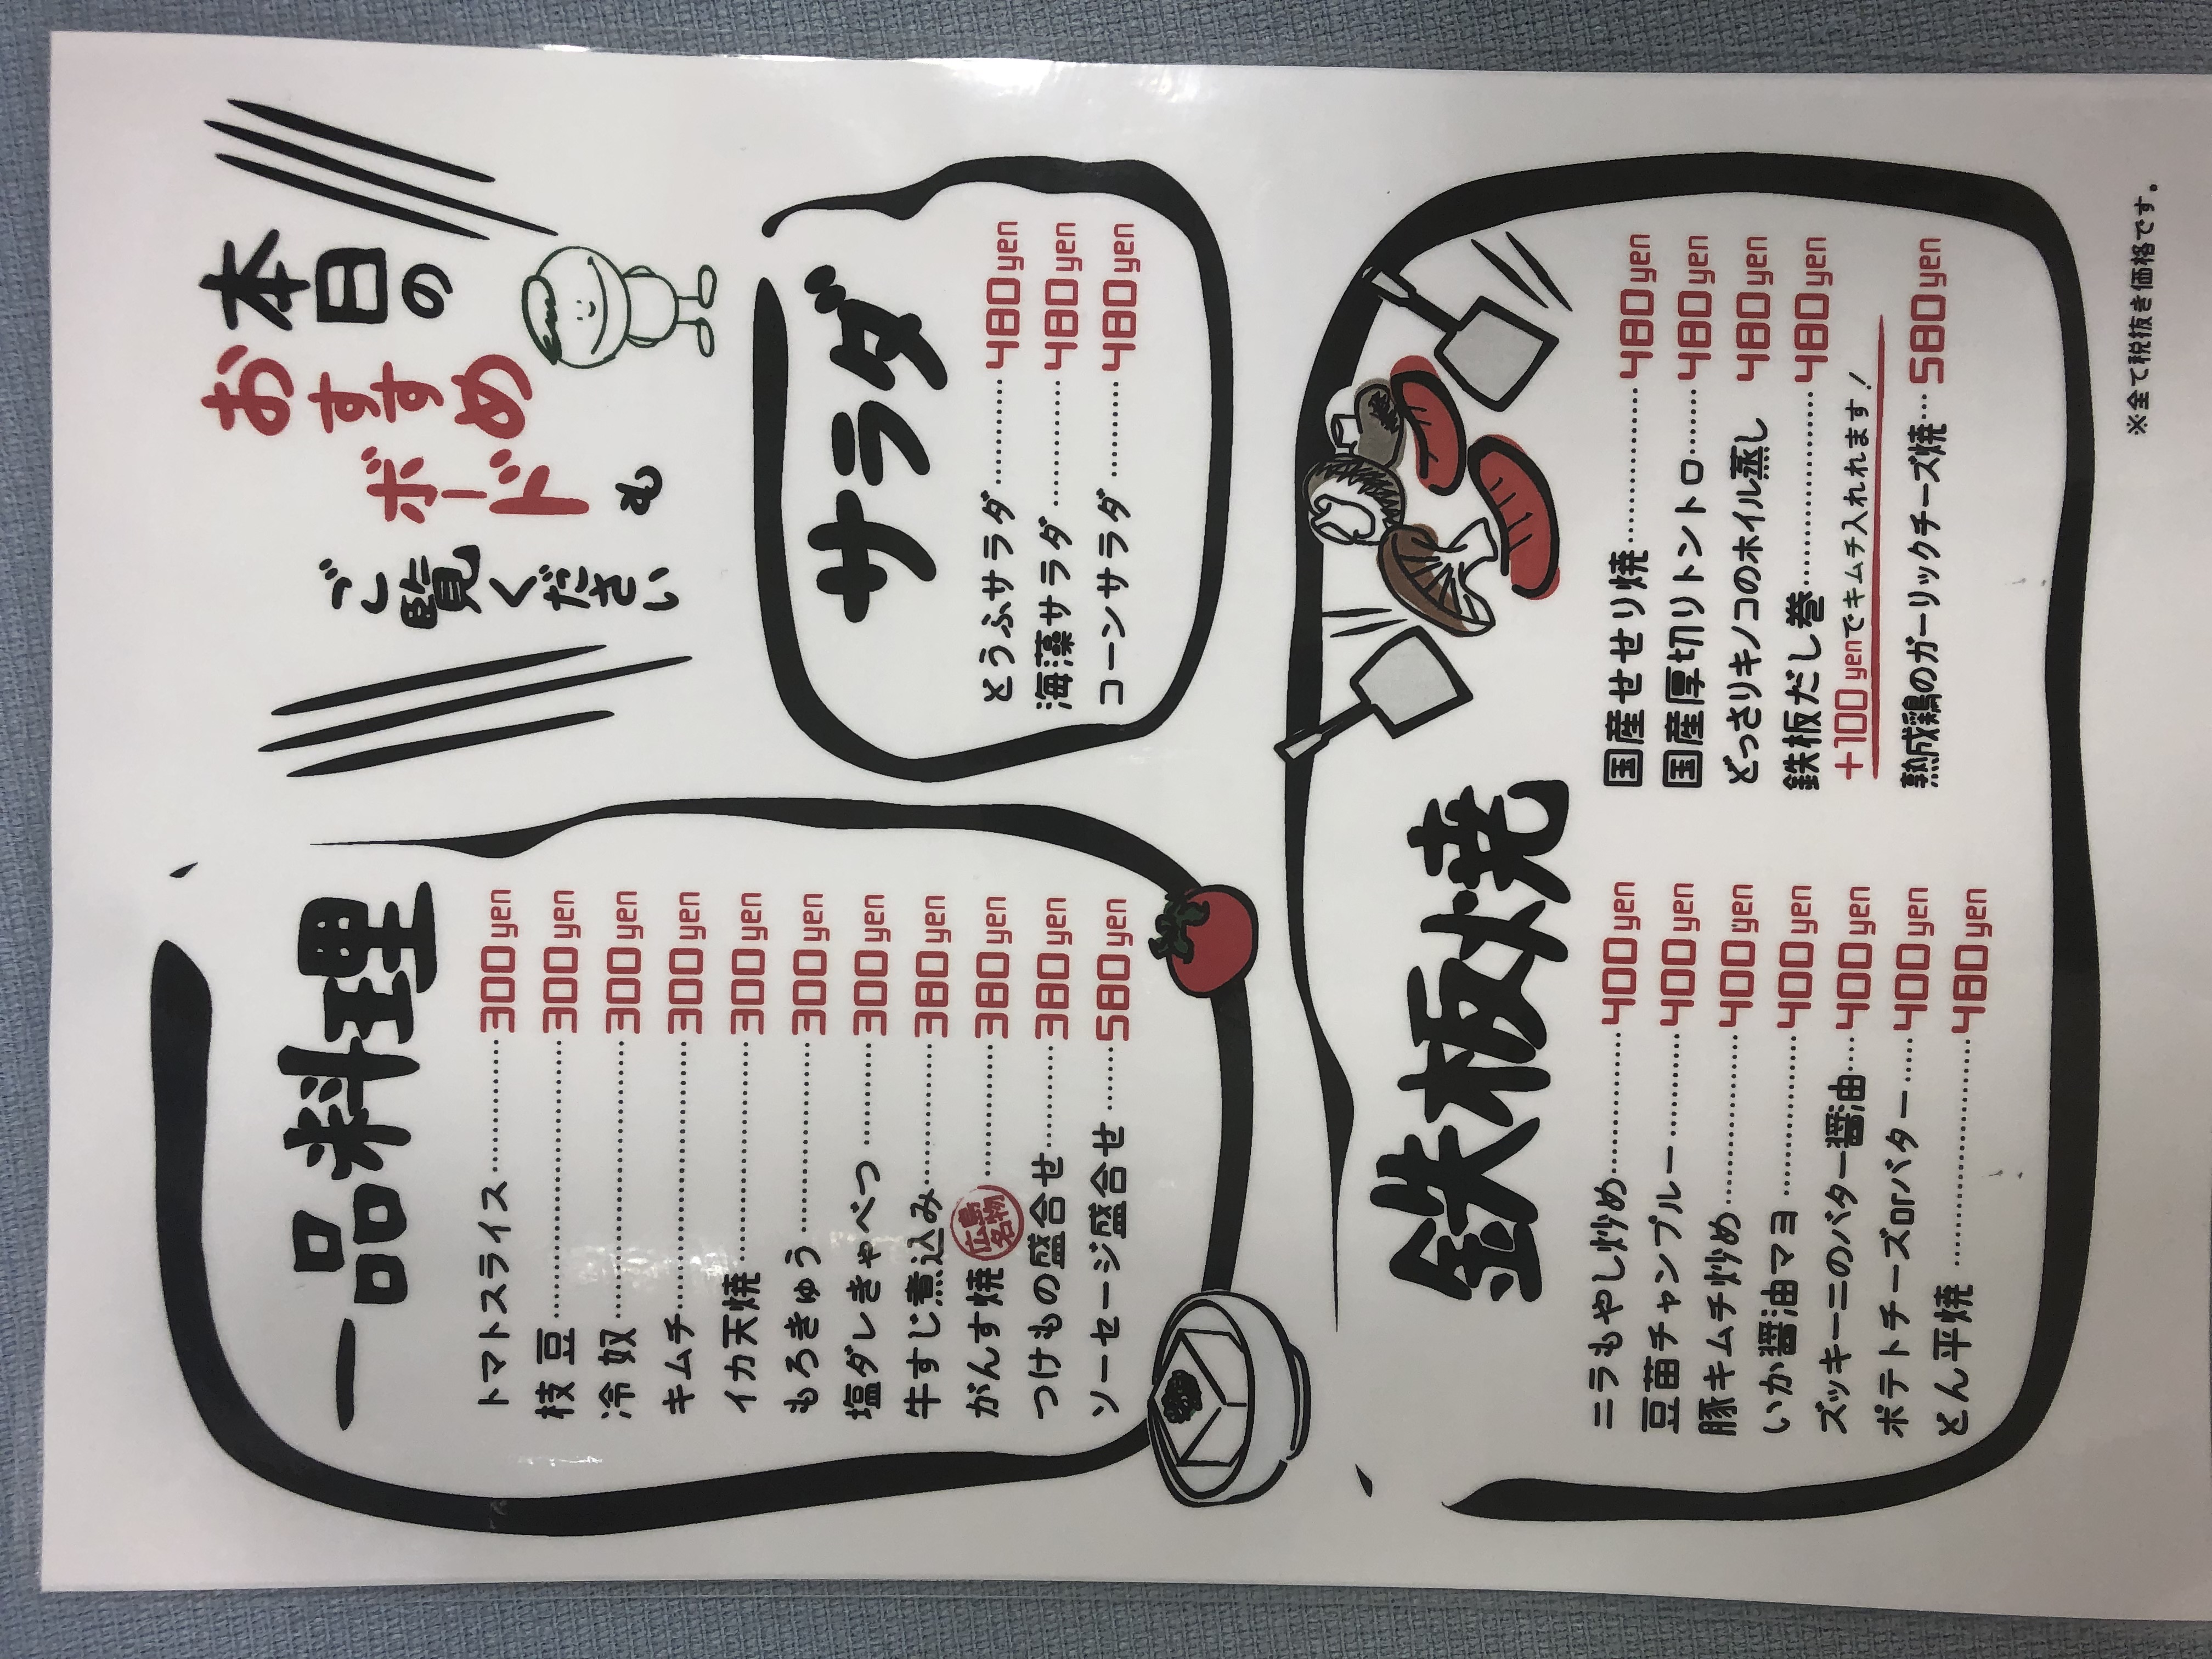 一品料理
トマトスライス…………300yen
枝豆……………………300yen
冷奴……………………300yen
キムチ…………………300yen
イカ天焼………………300yen
もろきゅう……………300yen
塩ダレきゃべつ………300yen
牛すじ煮込み…………380yen
がんす焼 広島名物……380yen
つけもの盛合せ………380yen
ソーセージ盛合せ……580yen
本日の
おすすめ
ボードも
ご覧ください
サラダ
とうふサラダ………480yen
海藻サラダ…………480yen
コーンサラダ………480yen
鉄板焼
ニラもやし炒め………400yen
豆苗チャンプルー……400yen
豚キムチ炒め…………400yen
いか醤油マヨ…………400yen
ズッキーニのバター醤油…400yen
ポテトチーズorバター……400yen
とん平焼………………480yen
国産せせり焼…………480yen
国産厚切りトントロ……480yen
どっさりキノコのホイル蒸し 480yen
鉄板だし巻……………480yen
+100yenでキムチ入れれます！
熟成鶏のガーリックチーズ焼…580yen
※全て税抜き価格です。